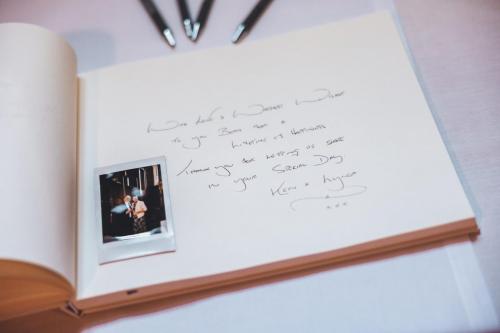 With Love & Warmest Wishes
to you Both for a
Lifetime of Happiness
Thank you for letting us share
in your Special Day
Kev &
xxx